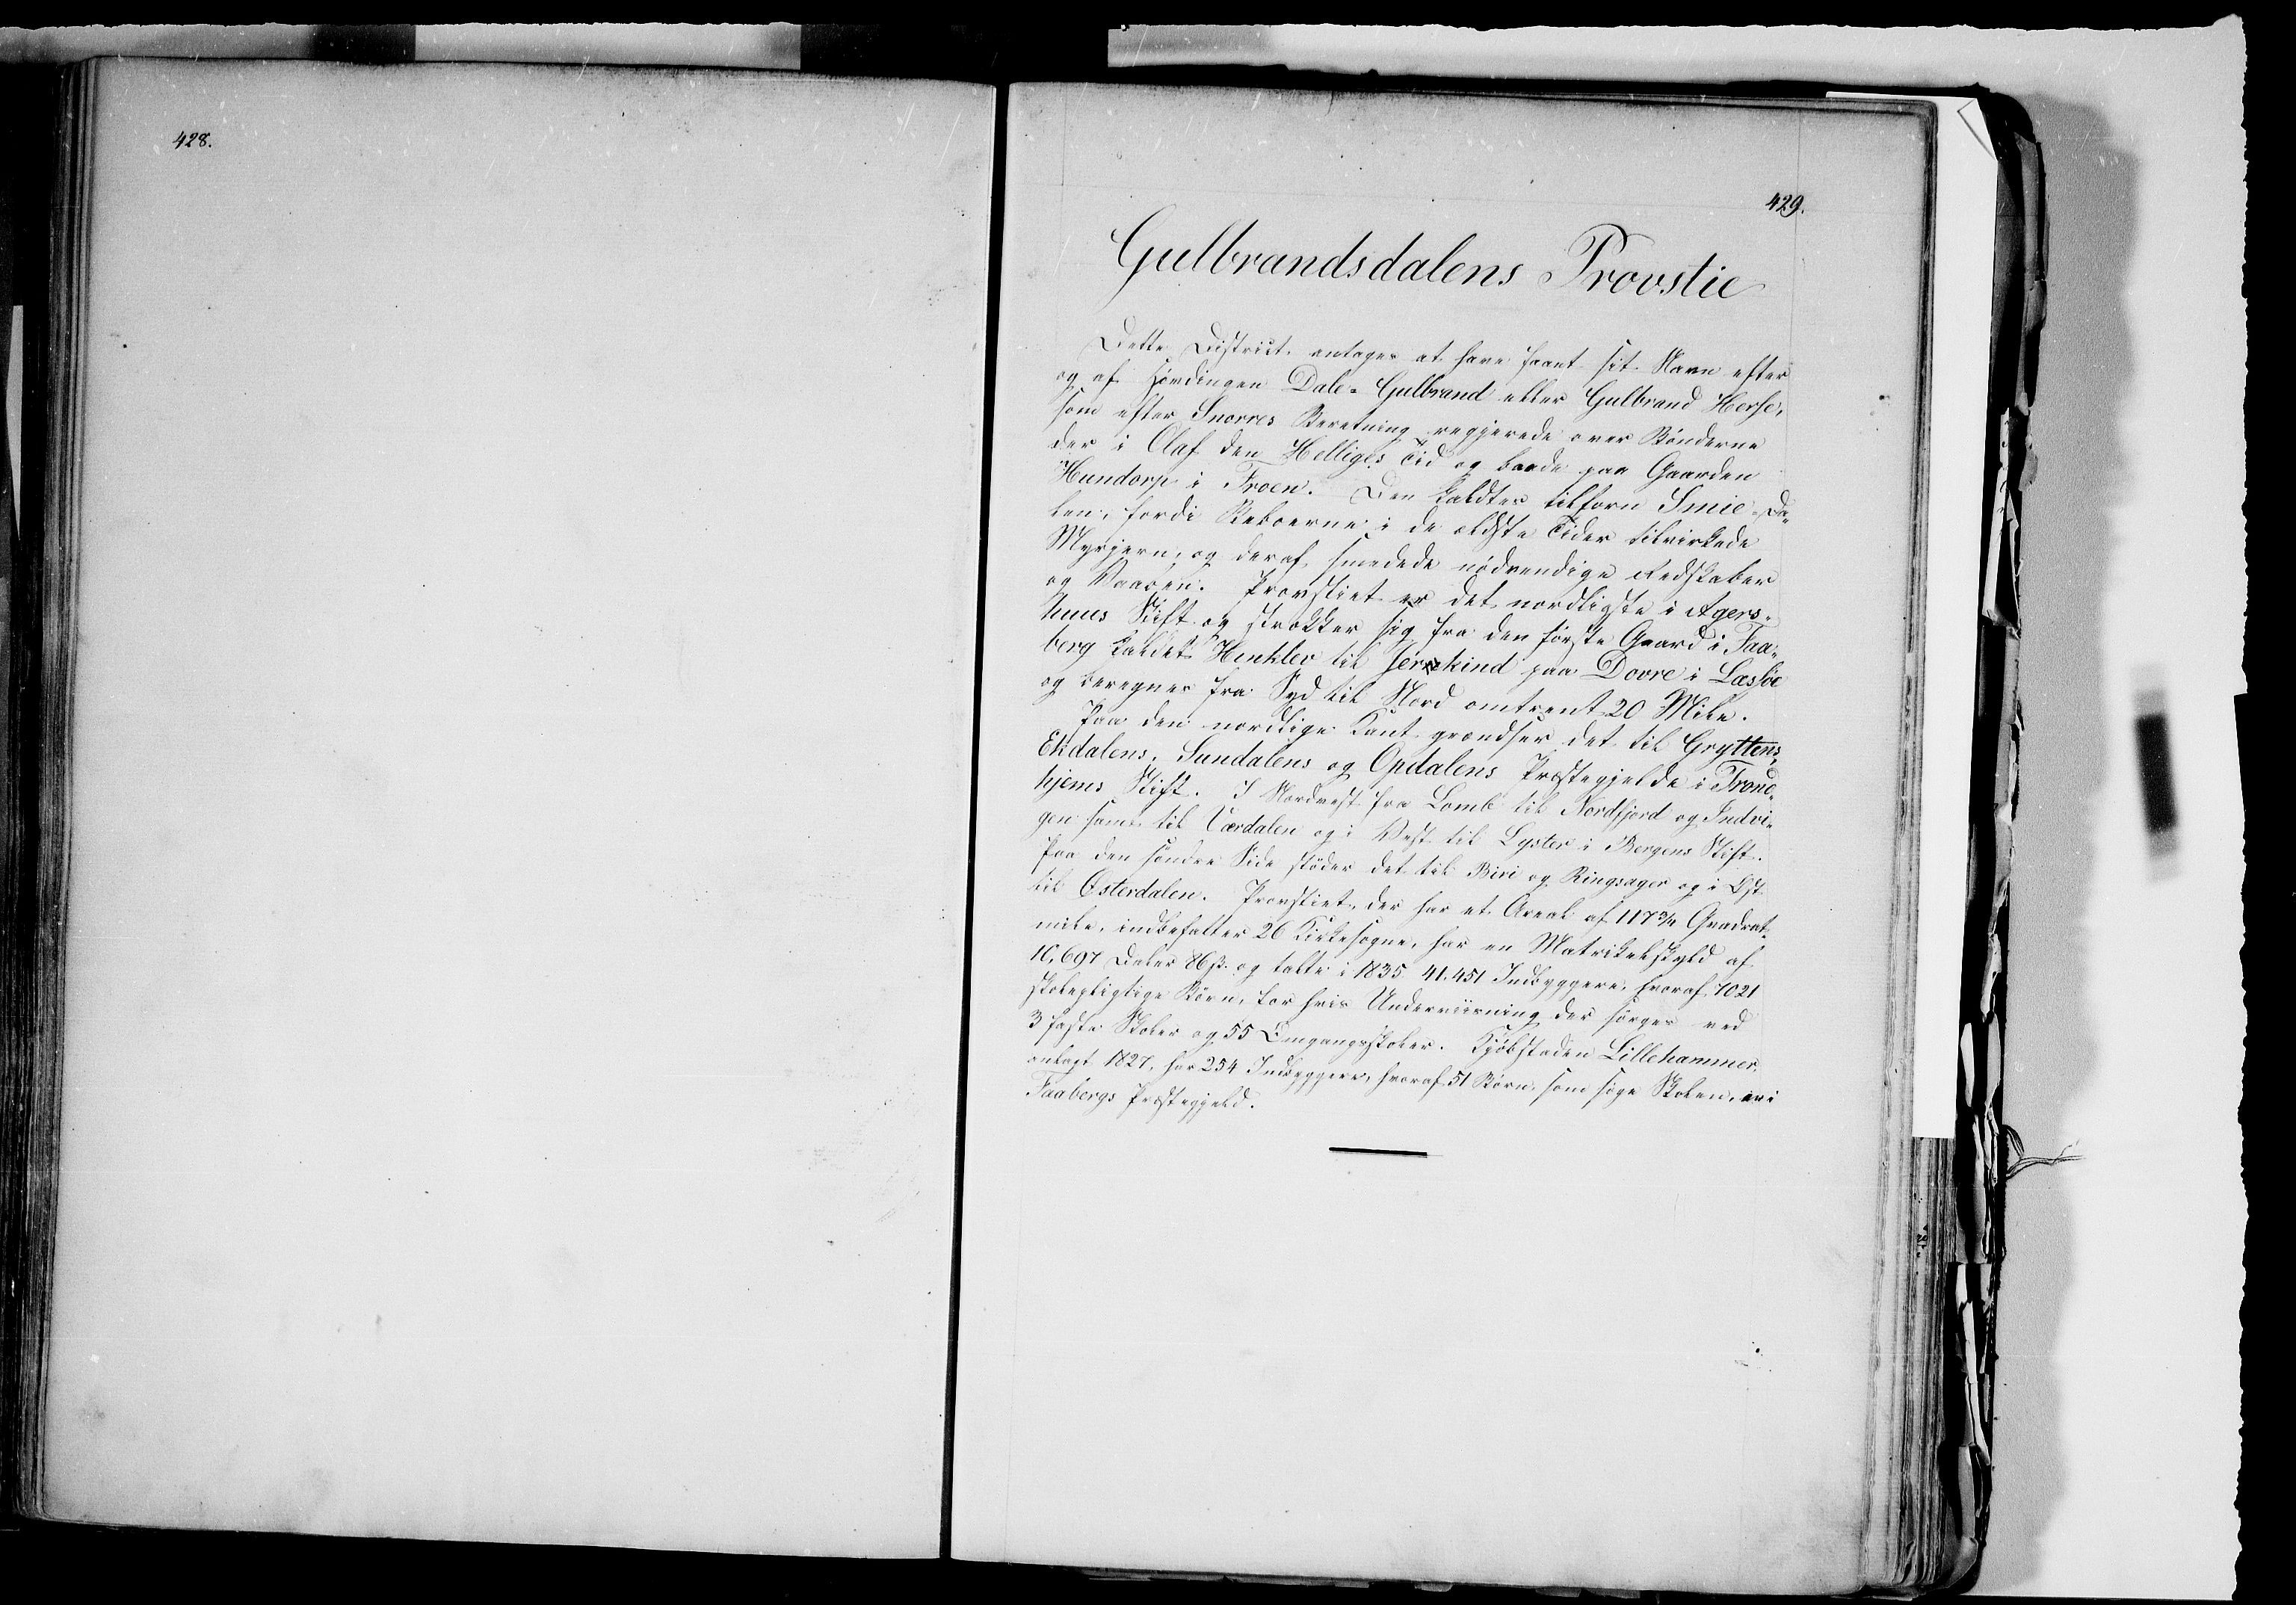 428.
429.
Gulbrandsdalens Provstie
Dette District antages at have faaet sit Navn efter
og af Høvdingen Dale-Gulbrand eller Gulbrand Herse,
som efter Snorres Beretning regjerede over Bønderne
der i Olaf den Helliges Tid og boede paa Gaarden
Hundorp i Froen. Den kaldtes tilforn Smie-Da-
len, fordi Beboerne i de ældste Tider tilvirkede
Myrjern, og deraf smedede nødvendige Redskaber
og Vaaben. Provstiet er det nordligste i Agers-
huus Stift og strækker sig fra den første Gaard i Faa-
berg kaldet Hinklev til Jerkind paa Dovre i Læssøe
og beregnes fra Syd til Nord omtrent 20 Mile.
Paa den nordlige Kant grændser det til Gryttens,
Ekdalens, Sundalens og Opdalens Præstegjelde i Trond-
hjems Stift. I Nordvest fra Lomb til Nordfjord og Indvi-
gen samt til Urdalen og i Vest til Lyster i Bergens Stift.
Paa den søndre Side støder det til Biri og Ringsager og i Øst
til Østerdalen. Provstiet, der har et Areal af 117 3/4 Qvadrat-
mile, indbefatter 26 Kirkesogne, har en Matrikelskyld af
10,697 Daler 86 ß. og talte i 1835 41.451 Indbyggere, hvoraf 7021
skolepligtige Børn, for hvis Underviisning der sørges ved
3 faste Skoler og 55 Omgangsskoler. Kjøbstaden Lillehammer,
anlagt 1827, har 254 Indbyggere, hvoraf 51 Børn, som søge Skolen, er i
Faabergs Præstegjeld.